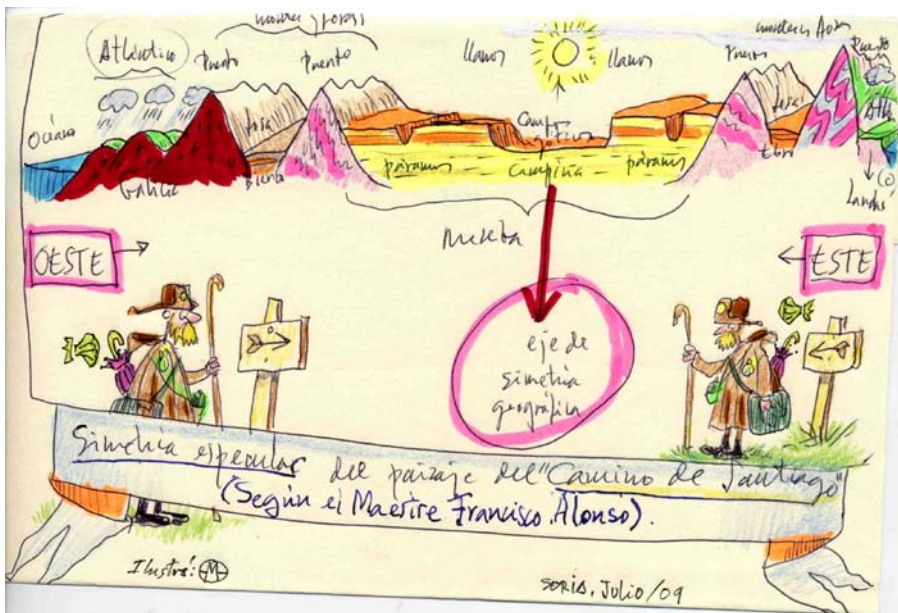 montes y fosas
montes y fosas
Atlántico
Puerto
Puerto
llanos
llanos
Puerto
Puerto
Océano
fosa
Campos
góticos
fosa
Atl.
Galicia
Bierzo
páramos
Campiña
páramos
Ebro
(o)
Landas
Meseta
OESTE
ESTE
eje de
simetría
geográfica
Simetría especular del paizaje del "Camino de Santiago"
(Según el Maestre Francisco Alonso).
Ilustró: M
SORIA, Julio/09